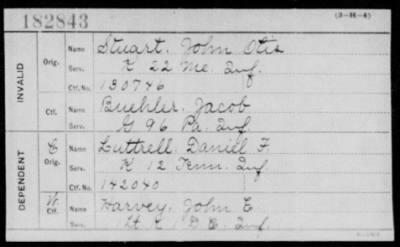 182843
(3-H-4)
INVALID
Orig.
Name Stuart, John Otis
Serv. K 22 Me. Inf.
Ctf. No. 130746
Ctf.
Name Buehler, Jacob
Serv. G 96 Pa. Inf.
DEPENDENT
C Orig.
Name Luttrell, Daniel F.
Serv. K 12 Tenn. Inf.
Ctf. No. 142040
W. Ctf.
Name Harvey, John E.
Serv. Lt K 1 D.C. Inf.